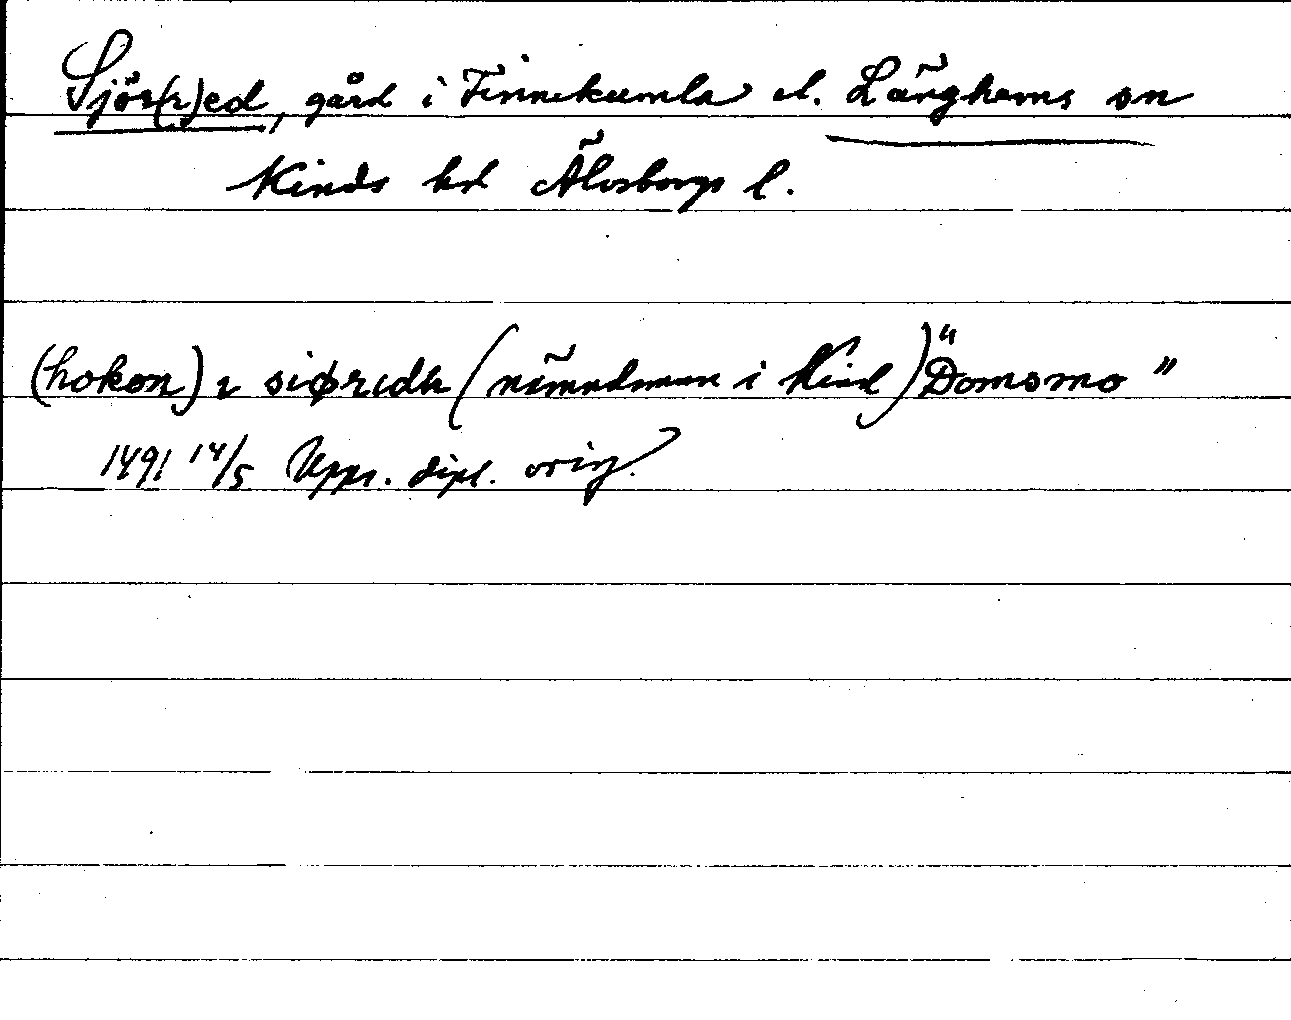 Sjör(r)ed, gård i Finnekumla el. Länghems sn
Kinds hd Älvsborgs l.
(hokon) i siørydh (nämndman i Kind) "Domsmo"
1491 14/5 Upps. dipl. orig.